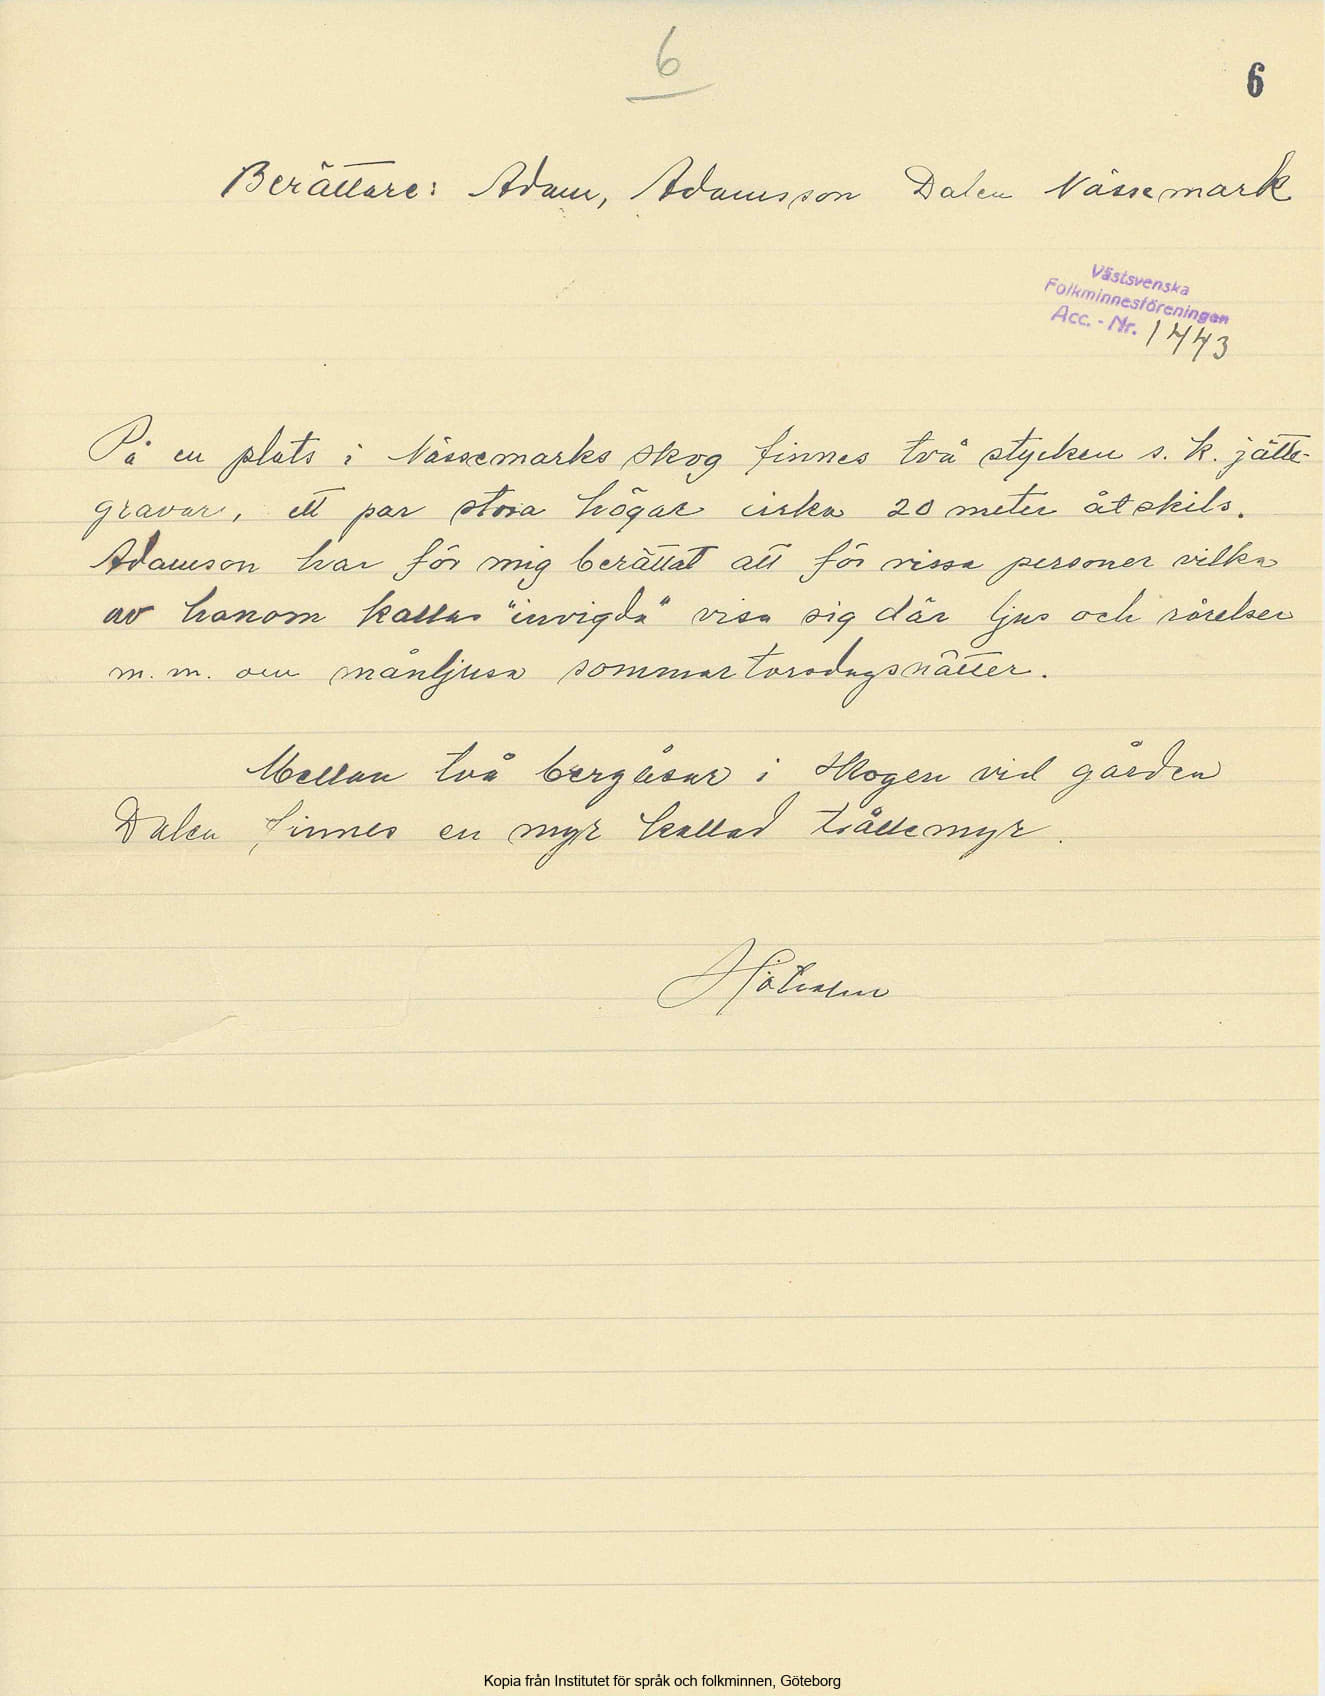 6
6
Berättare: Adam, Adamsson Dalen Nössemark
Västsvenska
Folkminnesföreningen
Acc. - Nr. 1443
På en plats i Nössemarks skog finnes två stycken s. k. jätte-
gravar, ett par stora högar cirka 20 meter åtskils.
Adamson har för mig berättat att för vissa personer vilka
av honom kallas "invigda" visa sig där ljus och rörelser
m. m. om månljusa sommartorsdagsnätter.
Mellan två bergåsar i skogen vid gården
Dalen finnes en myr kallad
Kopia från Institutet för språk och folkminnen, Göteborg